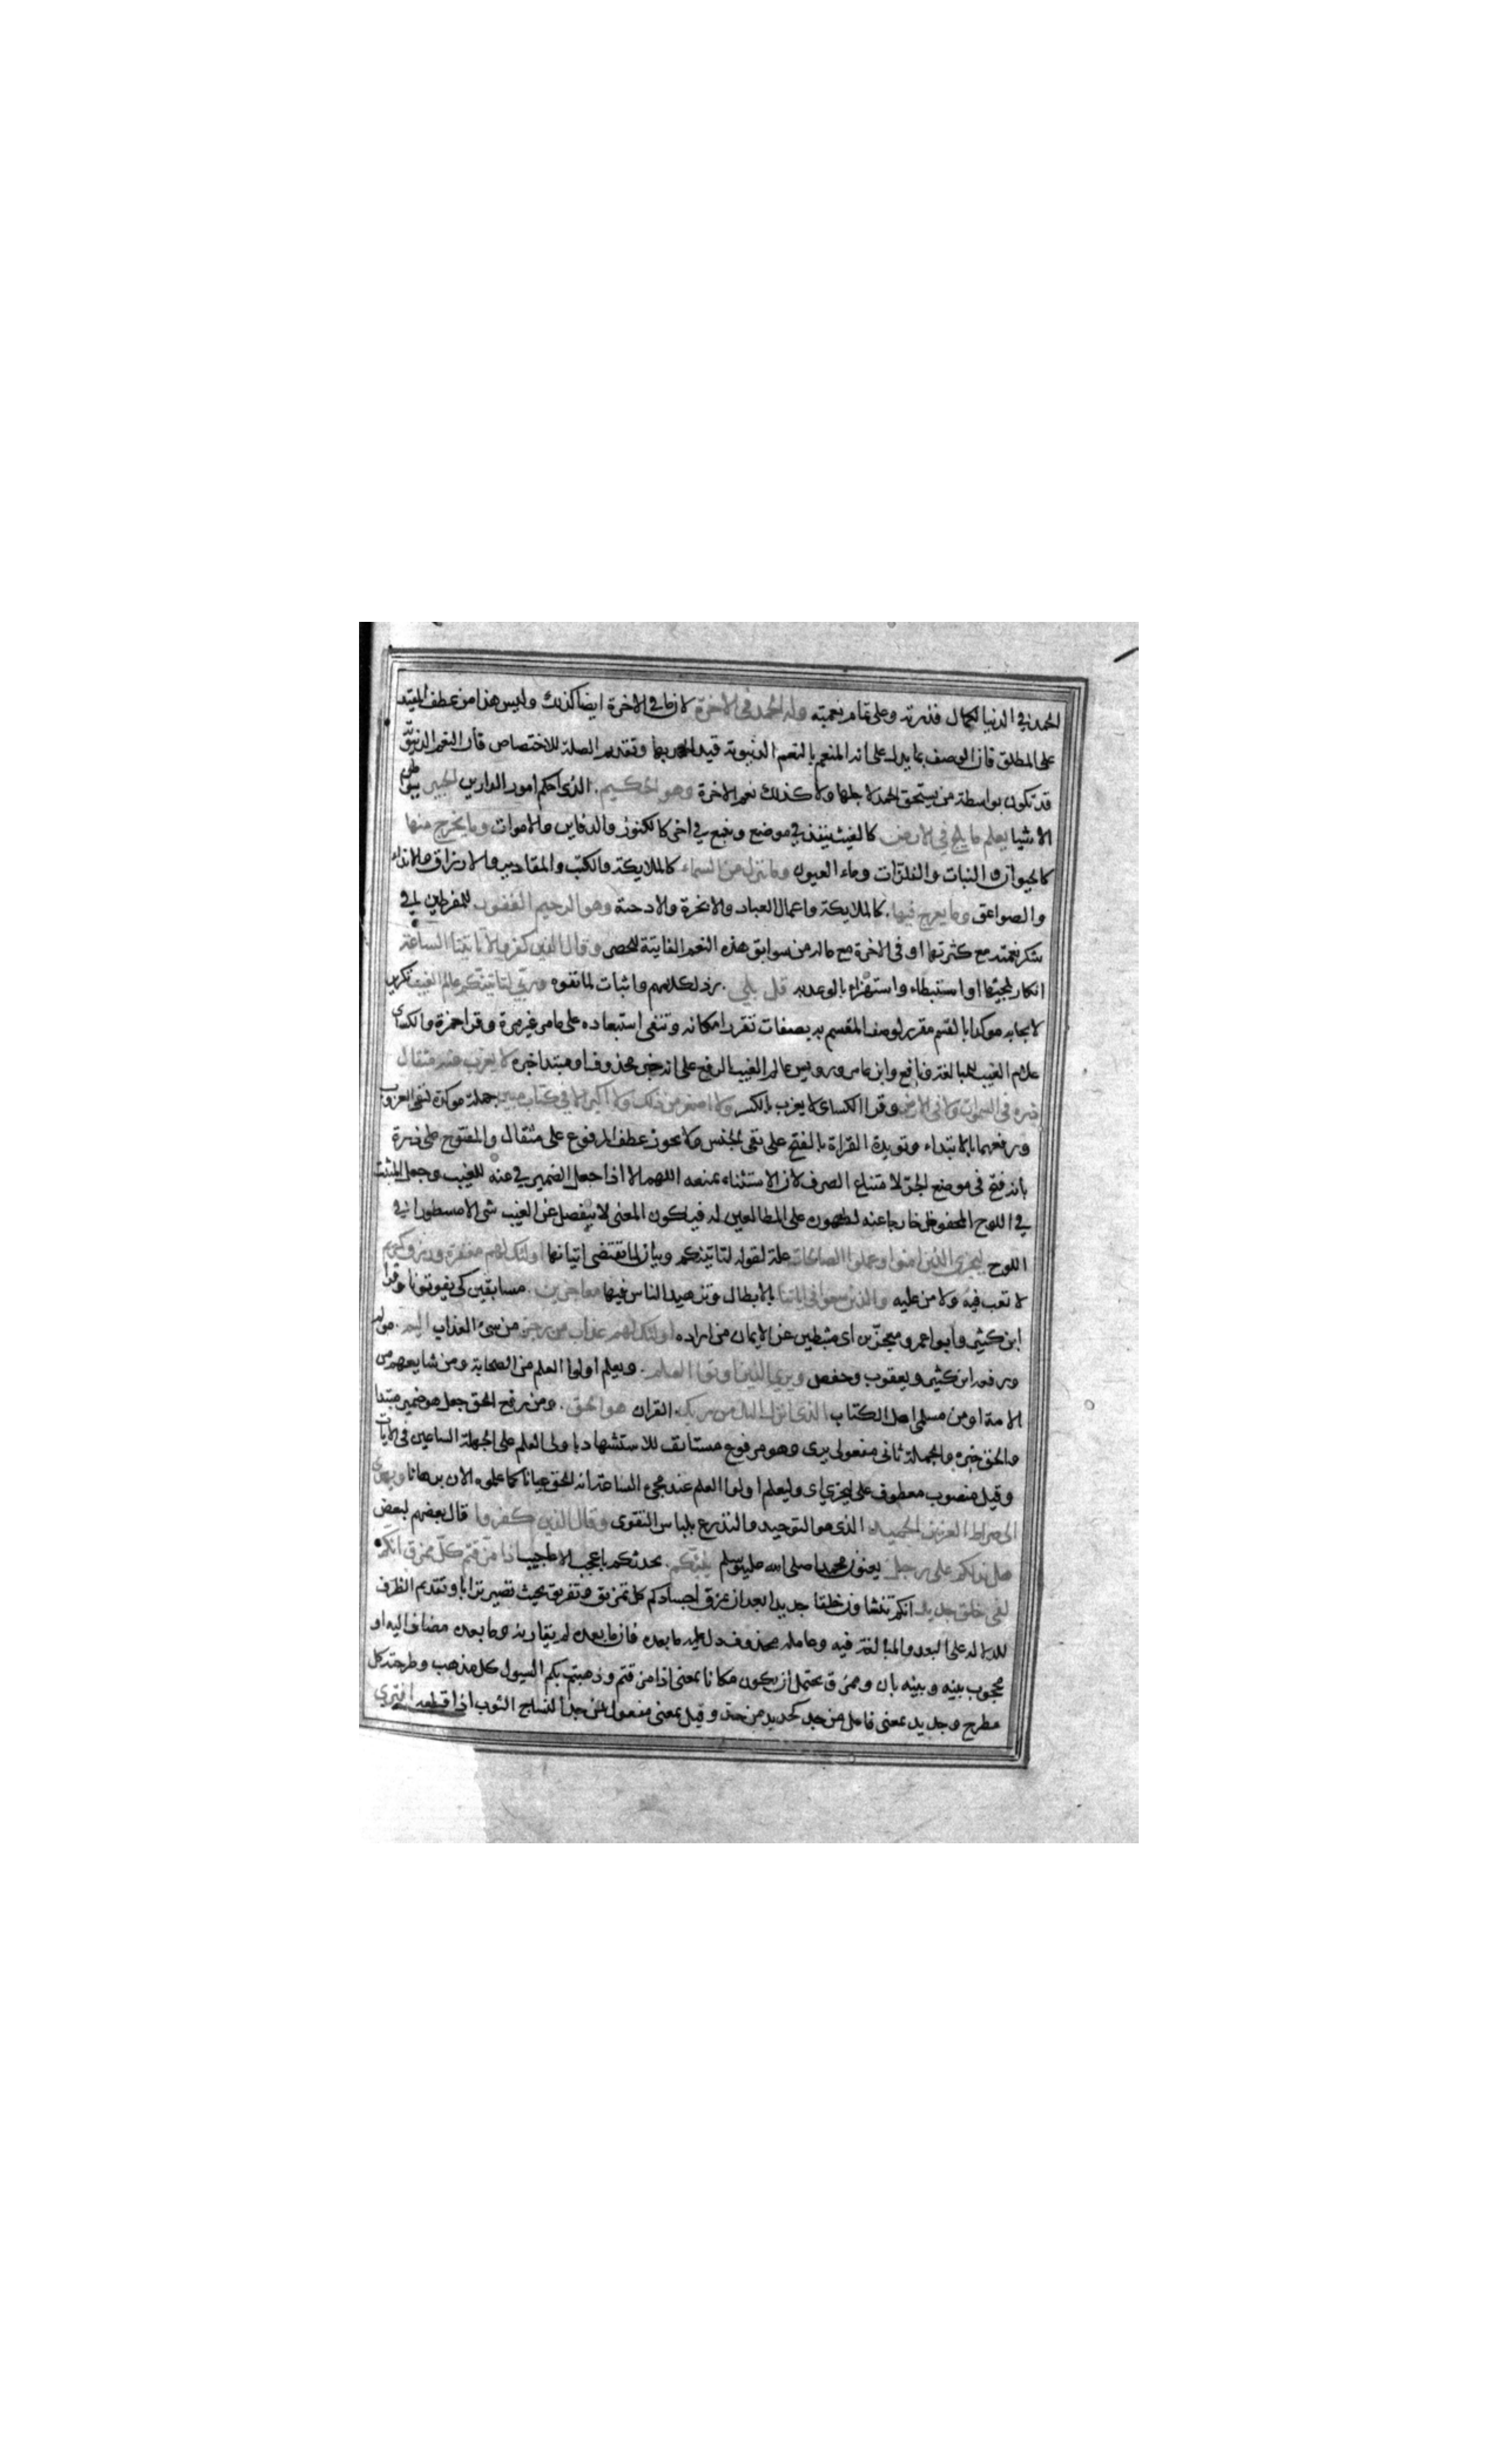 الحمد في الدنيا لكمال قدرته وعلى تمام نعمته وله الحمد في الاخرة لان ما في الاخرة ايضا كذلك وليس هذا من عطف المقيد
على المطلق فان الوصف بما يدل على انه المنعم بالنعم الدنيوية قيد الحمد بها وتقديم الصلة للاختصاص فان النعم الدنيوية
قد تكون بواسطة من يستحق الحمد لاجلها ولا كذلك نعم الاخرة وهو الحكيم الذي احكم امور الدارين الخبير ببواطن
الاشيا يعلم ما يلج في الارض كالغيث ينفذ في موضع وينبع في اخر كالكنوز والدفاين والاموات وما يخرج منها
كالحيوان والنبات والفلزات وماء العيون وما ينزل من السماء كالملايكة والكتب والمقادير والارزاق والانداء
والصواعق وما يعرج فيها كالملايكة واعمال العباد والابخرة والادخنة وهو الرحيم الغفور للمفرطين في
شكر نعمته مع كثرتها او في الاخرة مع ماله من سوابق هذه النعم الفايتة للحصر وقال الذين كفروا لا تاتينا الساعة
انكار لمجيئها او استبطاء واستهزاء بالوعد به قل بلى رد لكلامهم واثبات لما نفوه وربي لتاتينكم عالم الغيب تكرير
لايجابه موكدا بالقسم مقرر لوصف المقسم به بصفات تقرر امكانه وتنفى استبعاده على ما مر غير مرة وقرا حمزة والكساى
علام الغيب للمبالغة ونافع وابن عامر ورويس عالم الغيب بالرفع على انه خبر محذوف او مبتدا خبره لا يعزب عنه مثقال
ذرة في السموات ولا في الارض وقرا الكساى لا يعزب بالكسر ولا اصغر من ذلك ولا اكبر الا في كتاب مبين جملة موكدة لنفي العزوب
ورفعهما بالابتداء وتويده القراة بالفتح على نفى الجنس ولا يجوز عطف المرفوع على مثقال والمفتوح على ذرة
بانه فتح في موضع الجر لامتناع الصرف لان الاستثناء يمنعه اللهم الا اذا جعل الضمير في عنه للغيب وجعل المثبت
في اللوح المحفوظ خارجا عنه لظهوره على المطالعين له فيكون المعنى لا ينفصل عن الغيب شى الا مسطورا في
اللوح ليجزى الذين امنوا وعملوا الصالحات علة لقوله لتاتينكم وبيان لما يقتضى اتيانها اولئك لهم مغفرة ورزق كريم
لا تعب فيه ولا من عليه والذين سعوا في اياتنا بالابطال وتزهيد الناس فيها معاجزين مسابقين كى يفوتونا وقرا
ابن كثير وابو عمرو معجزين اى مثبطين عن الايمان من اراده اولئك لهم عذاب من رجز من سىء العذاب اليم مولم
ورفعه ابن كثير ويعقوب وحفص ويرى الذين اوتوا العلم ويعلم اولوا العلم من الصحابة ومن شايعهم من
الامة او من مسلمى اهل الكتاب الذى انزل اليك من ربك القران هو الحق ومن رفع الحق جعل هو ضمير مبتدا
والحق خبره والجملة ثانى مفعولى يرى وهو مرفوع مستانف للاستشهاد باولى العلم على الجهلة الساعين في الايات
وقيل منصوب معطوف على ليجزي اى وليعلم اولوا العلم عند مجيء الساعة انه الحق عيانا كما علموه الان برهانا ويهدى
الى صراط العزيز الحميد الذى هو التوحيد والتدرع بلباس التقوى وقال الذين كفروا قال بعضهم لبعض
هل ندلكم على رجل يعنون محمدا صلى الله عليه وسلم ينبئكم يحدثكم باعجب الاعاجيب اذا مزقتم كل ممزق انكم
لفى خلق جديد انكم تنشاون خلقا جديدا بعد ان تمزق اجسادكم كل تمزيق وتفريق بحيث تصير ترابا وتقديم الظرف
للدلالة على البعد والمبالغة فيه وعامله محذوف دل عليه ما بعده فان ما بعده لم يقارنه وما بعده مضاف اليه او
محجوب بينه وبينه بان وممزق يحتمل ان يكون مكانا بمعنى اذا مزقتم وذهبتم بكم السيول كل مذهب وطرحته كل
مطرح وجديد بمعنى فاعل من جد كحديد من حد وقيل بمعنى مفعول من جد النساج الثوب اذا قطعه افترى